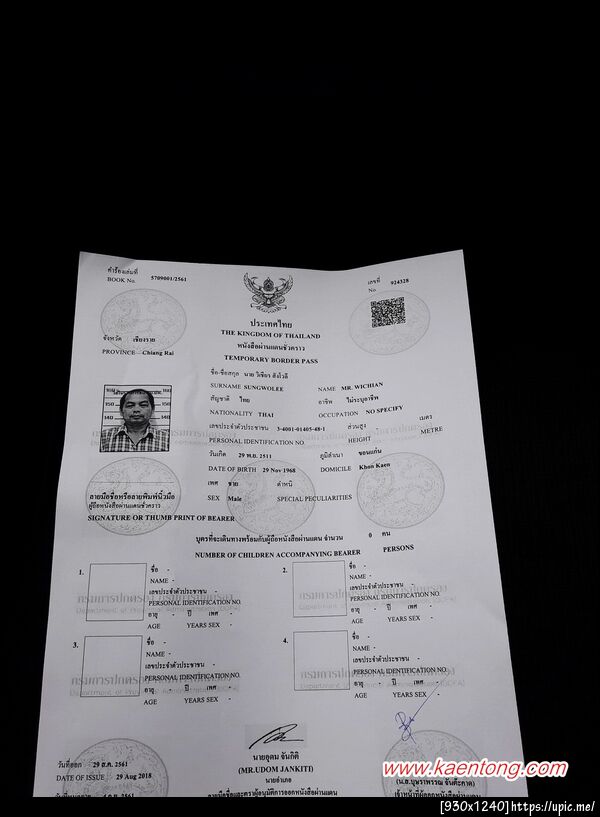 คำร้องเล่มที่
BOOK No. 5709001/2561
เลขที่
No. 924328
ประเทศไทย
THE KINGDOM OF THAILAND
หนังสือผ่านแดนชั่วคราว
TEMPORARY BORDER PASS
จังหวัด เชียงราย
PROVINCE Chiang Rai
ชื่อ-ชื่อสกุล นาย วิเชียร สังโวลี
SURNAME SUNGWOLEE NAME MR. WICHIAN
สัญชาติ ไทย อาชีพ ไม่ระบุอาชีพ
NATIONALITY THAI OCCUPATION NO SPECIFY
เลขประจำตัวประชาชน 3-4001-01405-48-1 ส่วนสูง - เมตร
PERSONAL IDENTIFICATION NO. HEIGHT METRE
วันเกิด 29 พ.ย. 2511 ภูมิลำเนา ขอนแก่น
DATE OF BIRTH 29 Nov 1968 DOMICILE Khon Kaen
เพศ ชาย ตำหนิ
SEX Male SPECIAL PECULIARITIES
ลายมือชื่อหรือลายพิมพ์นิ้วมือ
ผู้ถือหนังสือผ่านแดนชั่วคราว
SIGNATURE OR THUMB PRINT OF BEARER
บุตรที่จะเดินทางพร้อมกับผู้ถือหนังสือผ่านแดน จำนวน 0 คน
NUMBER OF CHILDREN ACCOMPANYING BEARER PERSONS
1.
ชื่อ -
NAME -
เลขประจำตัวประชาชน -
PERSONAL IDENTIFICATION NO.
อายุ - ปี เพศ -
AGE YEARS SEX -
2.
ชื่อ -
NAME -
เลขประจำตัวประชาชน -
PERSONAL IDENTIFICATION NO.
อายุ - ปี เพศ -
AGE YEARS SEX -
3.
ชื่อ -
NAME -
เลขประจำตัวประชาชน -
PERSONAL IDENTIFICATION NO.
อายุ - ปี เพศ -
AGE YEARS SEX -
4.
ชื่อ -
NAME -
เลขประจำตัวประชาชน -
PERSONAL IDENTIFICATION NO.
อายุ - ปี เพศ -
AGE YEARS SEX -
วันที่ออก 29 ส.ค. 2561
DATE OF ISSUE 29 Aug 2018
นายอุดม จันกิติ
(MR.UDOM JANKITI)
นายอำเภอ
www.kaentong.com
เจ้าหน้าที่ผู้ออกหนังสือผ่านแดน
[930x1240]https://upic.me/